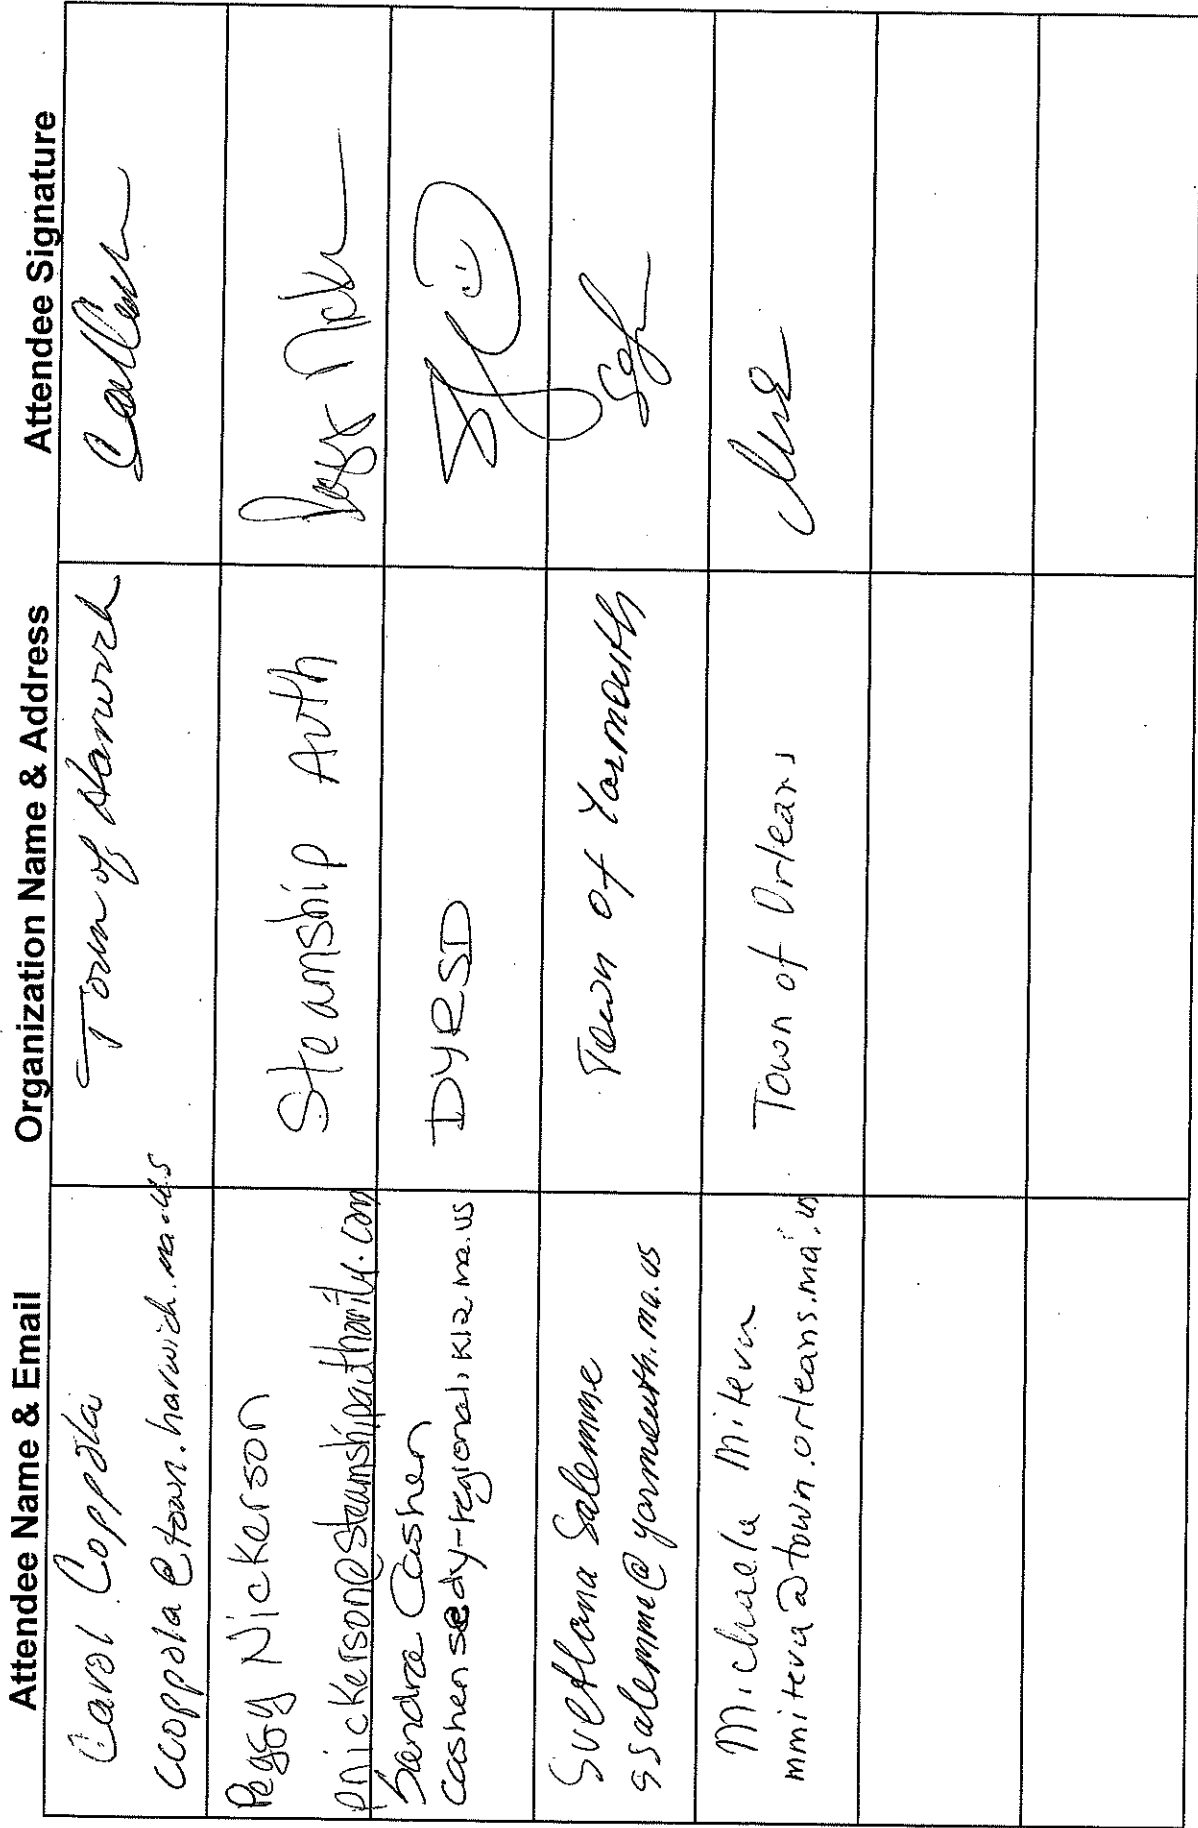 Attendee Name & Email Organization Name & Address Attendee Signature
Carol Coppola
ccoppola@town.harwich.ma.us
Town of Harwich
Peggy Nickerson
pnickerson@steamshipauthority.com
Steamship Auth
Sandra Cashen
cashens@dy-regional.k12.ma.us
DYRSD
Svetlana Salemme
ssalemme@yarmouth.ma.us
Town of Yarmouth
Michaela Miteva
mmiteva@town.orleans.ma.us
Town of Orleans